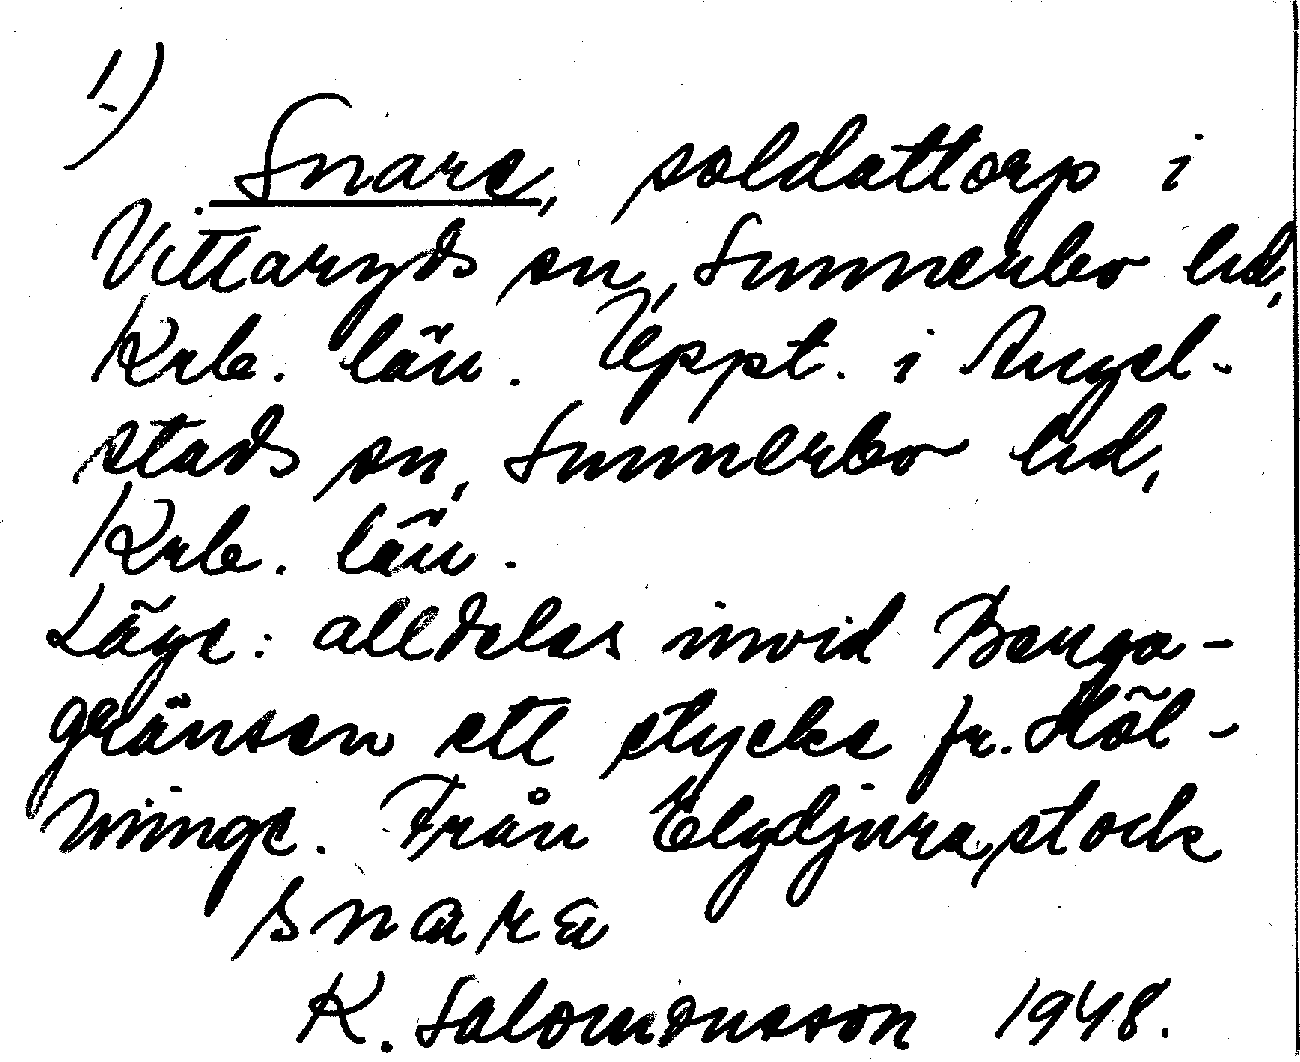 1)
Snare, soldattorp i
Vittaryds sn, Sunnerbo hd,
Krb. län. Uppt. i Angel-
stads sn, Sunnerbo hd,
Krb. län.
Läge: alldeles invid Berga-
gränsen ett stycke fr. Höl-
minge. Från Elgdjura, stock
snara
K. Salomonsson 1948.